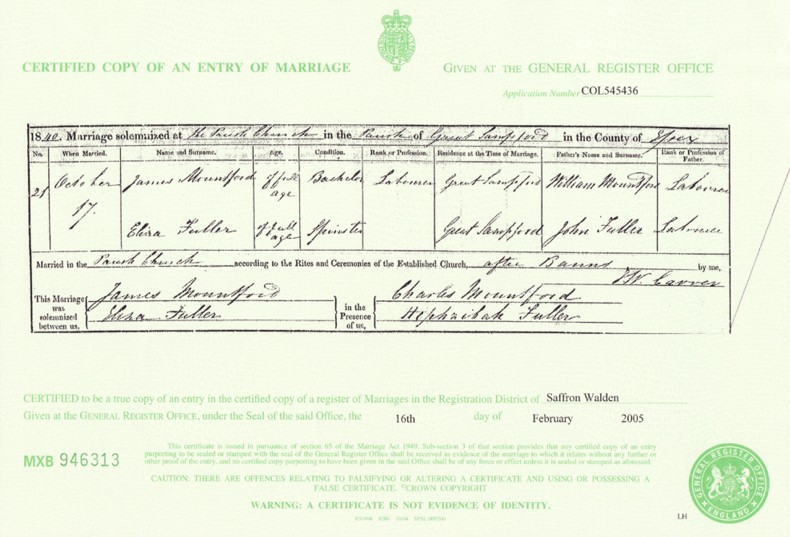 CERTIFIED COPY OF AN ENTRY OF MARRIAGE
GIVEN AT THE GENERAL REGISTER OFFICE
Application Number COL545436
1840. Marriage solemnized at the Parish Church in the Parish of Great Sampford in the County of Essex
No. When Married. Name and Surname. Age. Condition. Rank or Profession. Residence at the Time of Marriage. Father's Name and Surname. Rank or Profession of Father.
October James Mountford of full age Bachelor Labourer Great Sampford William Mountford Labourer
17. Eliza Fuller of full age Spinster Great Sampford John Fuller Labourer
Married in the Parish Church according to the Rites and Ceremonies of the Established Church, after Banns by me,
This Marriage was solemnized between us, James Mountford in the Presence of us, Charles Mountford
Eliza Fuller Hephzibah Fuller
CERTIFIED to be a true copy of an entry in the certified copy of a register of Marriages in the Registration District of Saffron Walden
Given at the GENERAL REGISTER OFFICE, under the Seal of the said Office, the 16th day of February 2005
MXB 946313
This certificate is issued in pursuance of section 65 of the Marriage Act 1949. Sub-section 3 of that section provides that any certified copy of an entry
purporting to be sealed or stamped with the seal of the General Register Office shall be received as evidence of the marriage to which it relates without any further or
other proof of the entry, and no certified copy purporting to have been given in the said Office shall be of any force or effect unless it is sealed or stamped as aforesaid.
CAUTION: THERE ARE OFFENCES RELATING TO FALSIFYING OR ALTERING A CERTIFICATE AND USING OR POSSESSING A
FALSE CERTIFICATE. ©CROWN COPYRIGHT
WARNING: A CERTIFICATE IS NOT EVIDENCE OF IDENTITY.
LH
GENERAL REGISTER OFFICE
ENGLAND